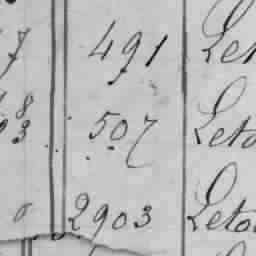 7 491 Let
83 507 Leto
0 2903 Letor